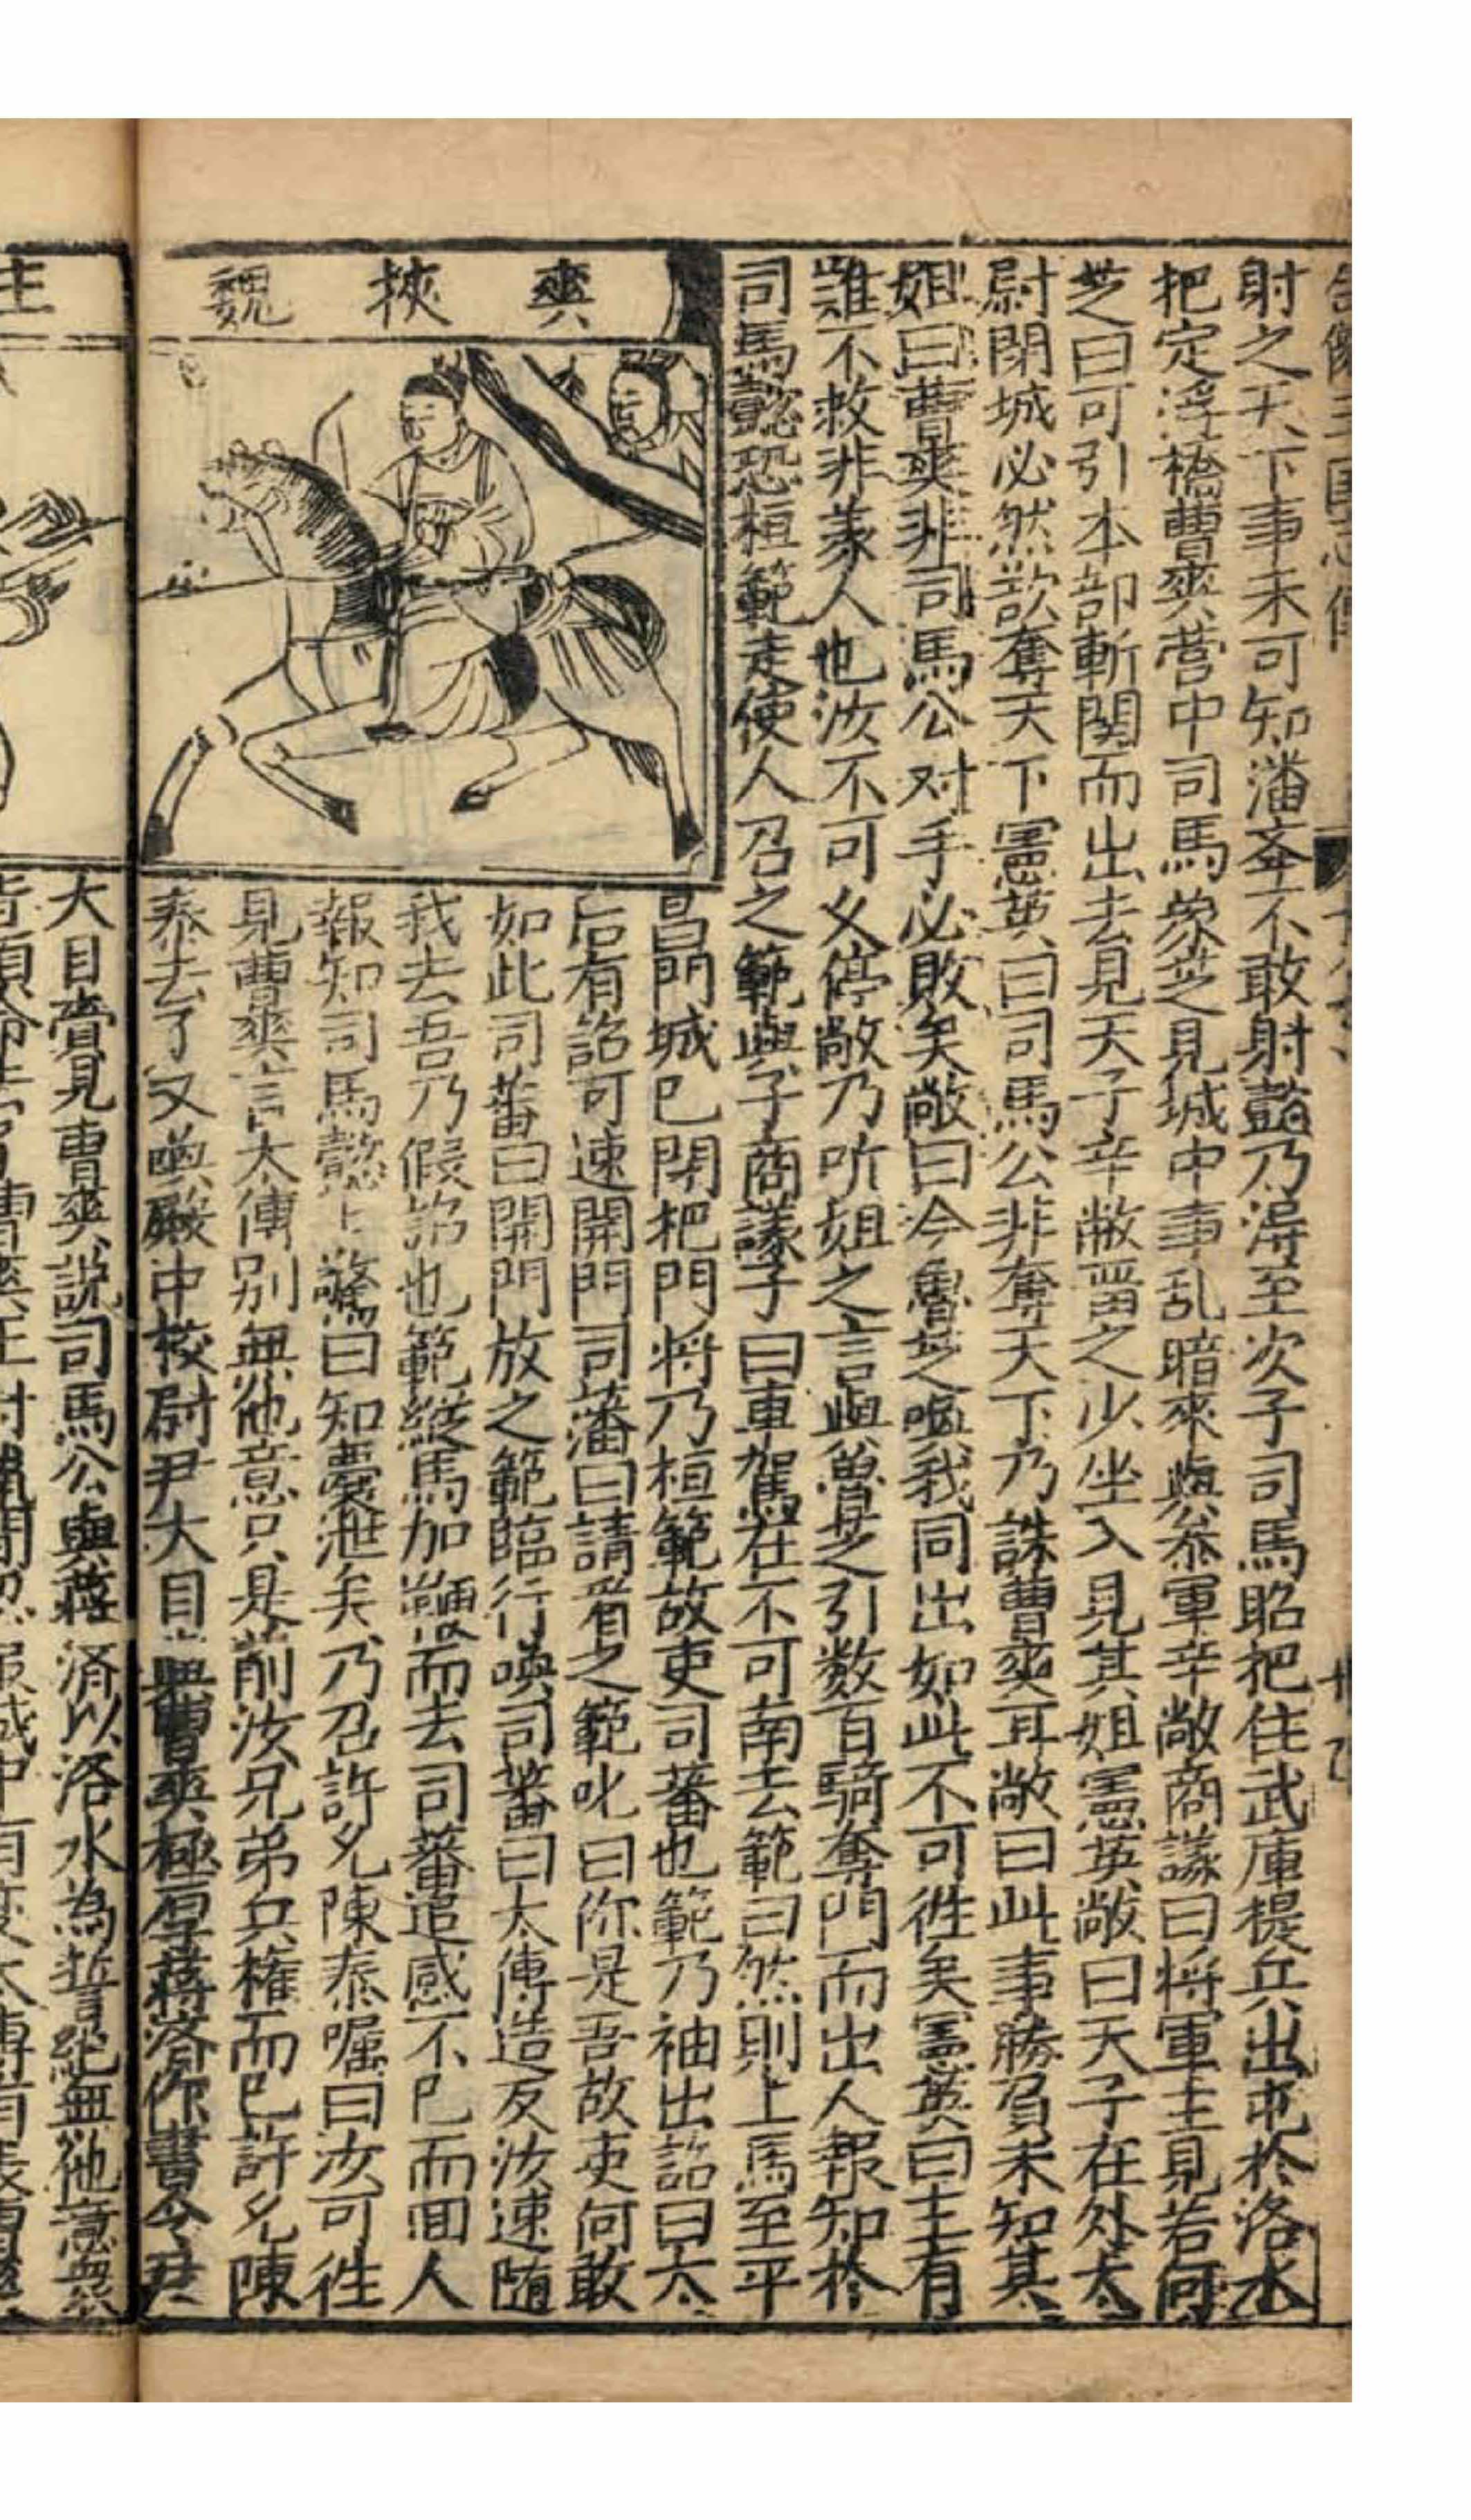 射之天下事未可知潘㪯不敢射懿乃淂至次子司馬昭把住武庫提兵出屯於洛水
把定浮橋曹爽营中司馬魯芝見城中事乱暗來與叅軍辛敞商議曰将軍主見若何
芝曰可引本部斬関而出去見天子辛敝畱之少坐入見其姐憲英敞曰天子在外太
尉閉城必然欲奪天下憲英曰司馬公非奪天下乃誅曹爽耳敞曰此事勝負未知其
姐曰曹爽非司馬公对手必敗矣敞曰今魯芝喚我同出如此不可徃矣憲英曰主有
難不救非義人也汝不可久停敞乃听姐之言與魯芝引数百騎奪門而出人報知於
司馬懿恐桓範走使人召之範與子商議子曰車駕在不可南去範曰然則上馬至平
爽挾魏
昌門城已閉把門将乃桓範故吏司蕃也範乃袖出詔曰太
后有詔可速開門司藩曰請看之範叱曰你是吾故吏何敢
如此司蕃曰開門放之範臨行喚司蕃曰太傅造反汝速随
我去吾乃假詔也範縱馬加鞭而去司蕃追感不已而回人
報知司馬懿上驚曰知囊泄矣乃召許允陳泰嘱曰汝可徃
見曹爽言太傅别無他意只是削汝兄弟兵權而已許允陳
泰去了又喚殿中校尉尹大目與曹爽極厚蔣济你書令尹
大目賫見曹爽說司馬公與蔣済以洛水為誓絶無他意無